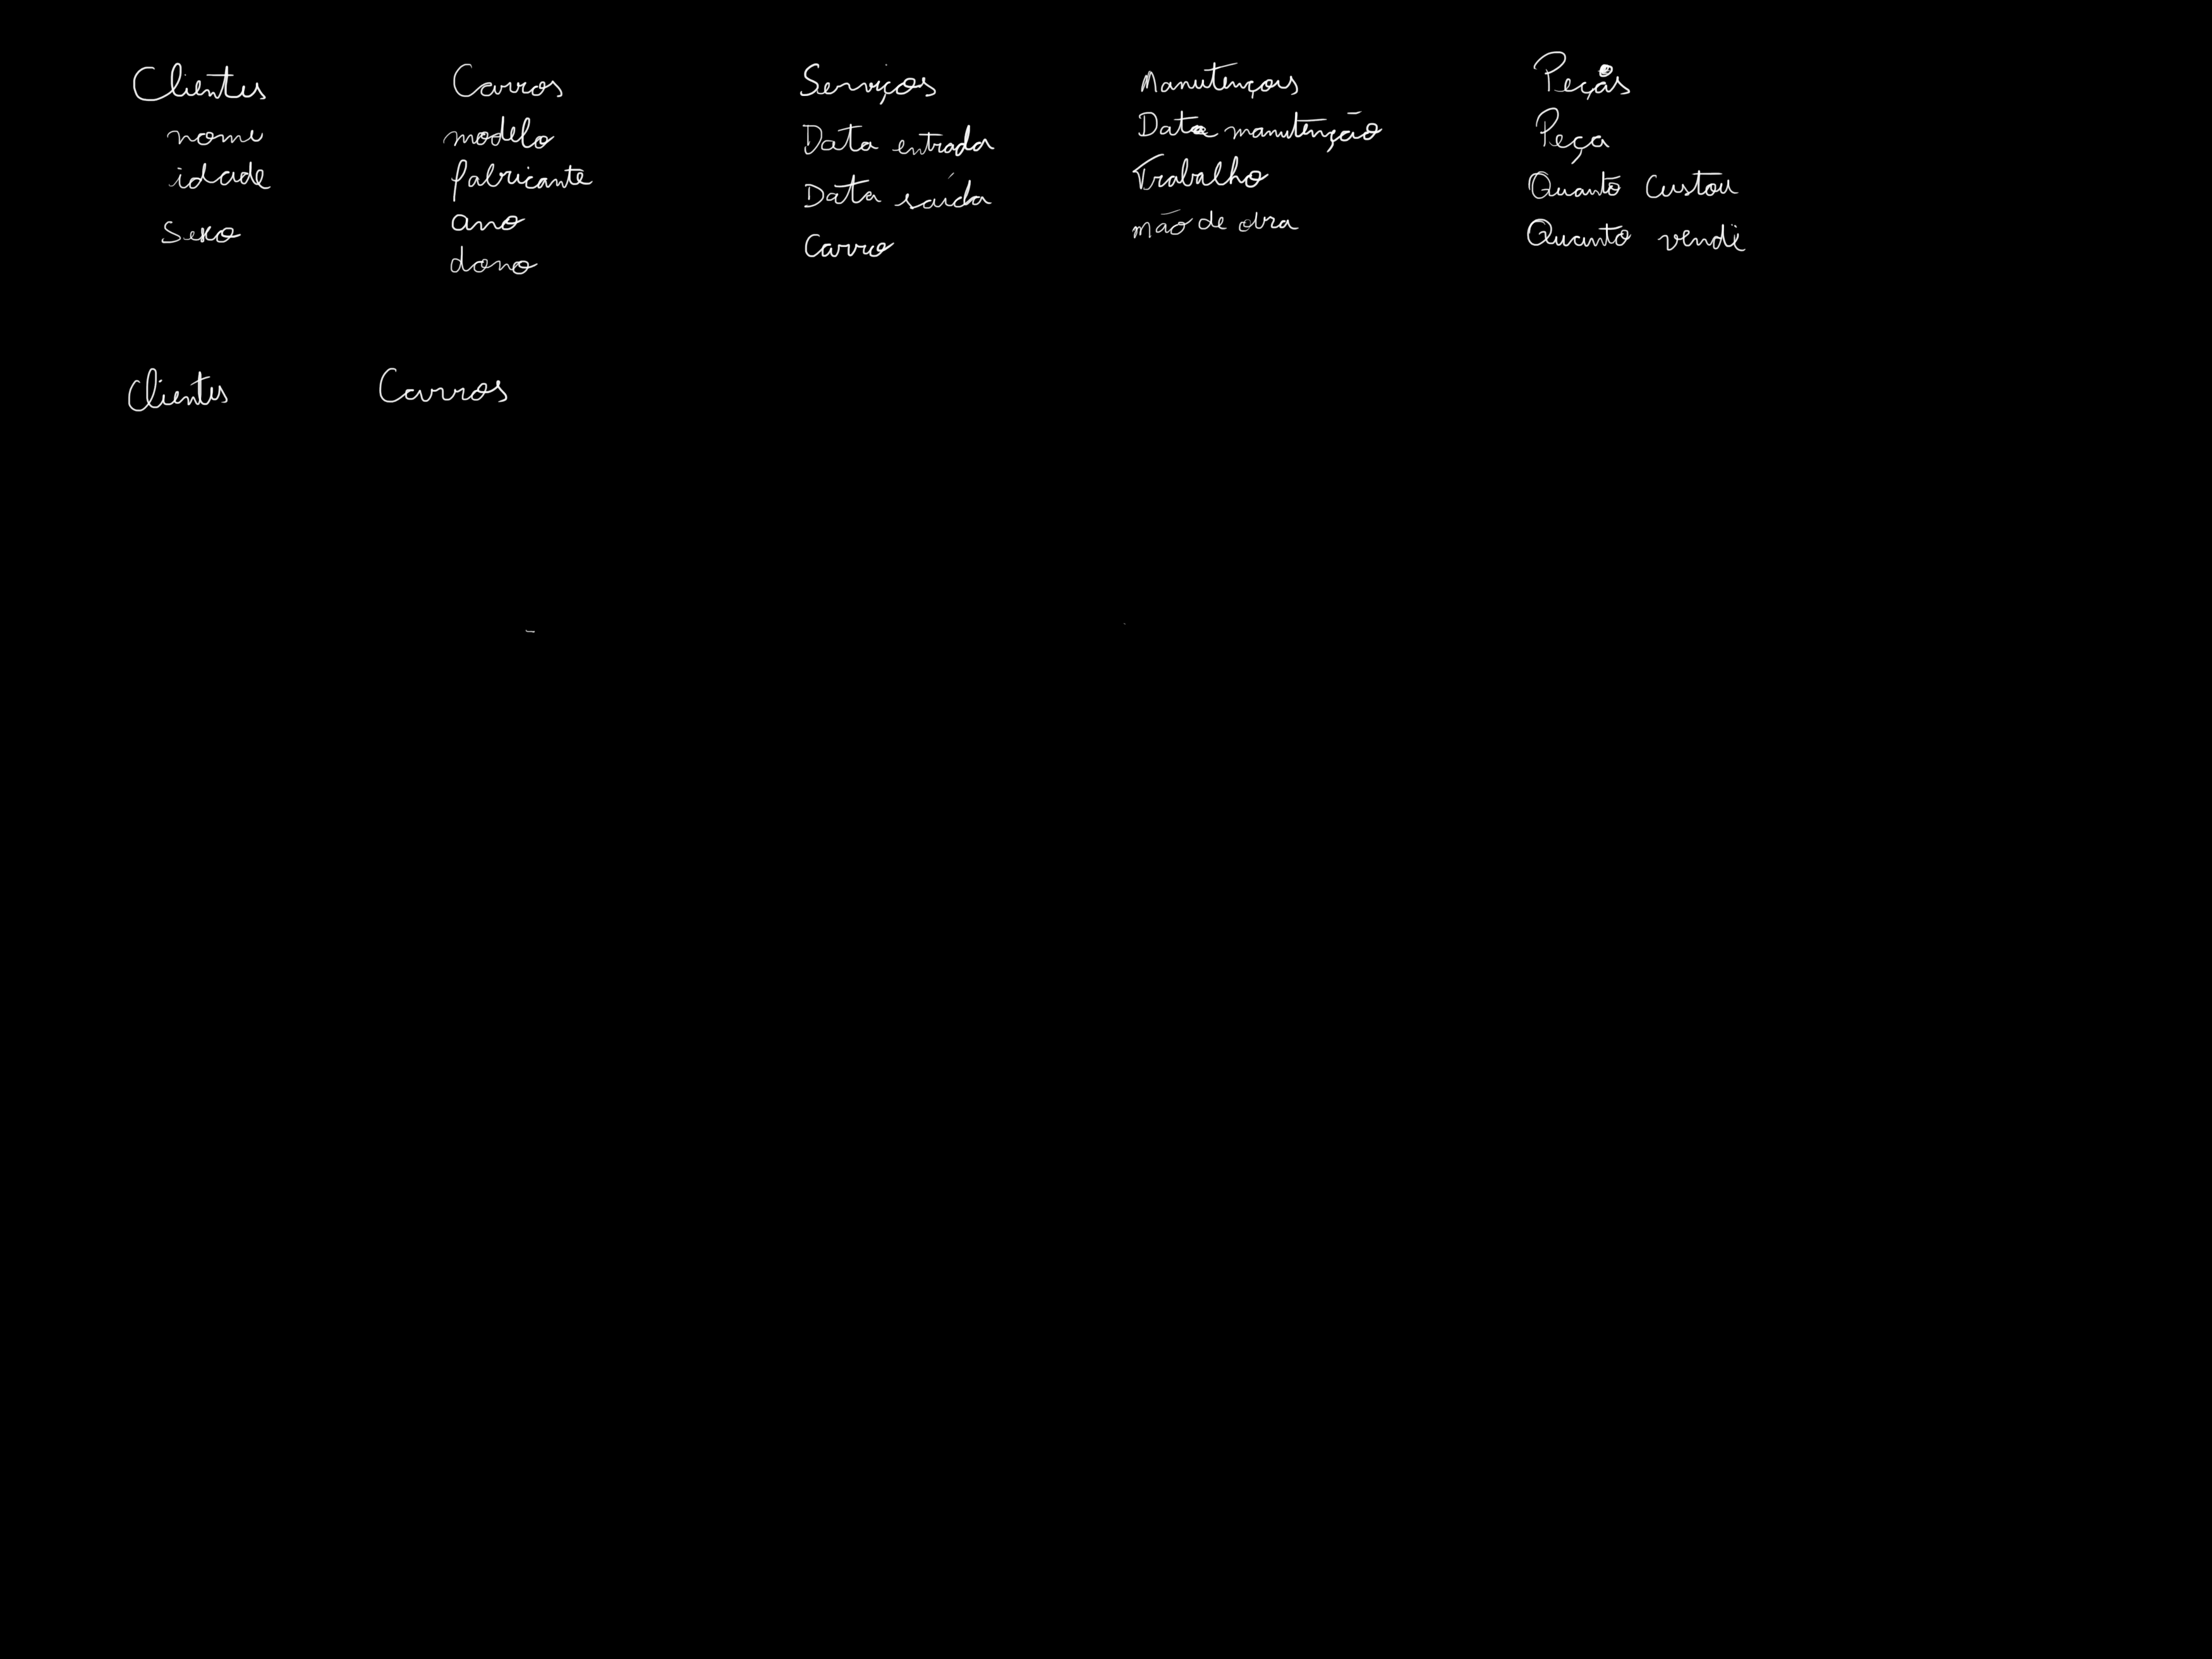 Clientes
nome
idade
sexo
Carros
modelo
fabricante
ano
dono
Serviços
Data entrada
Data saída
Carro
Manutenções
Data manutenção
Trabalho
mão de obra
Peças
Peça
Quanto custou
Quanto vendi
Clientes
Carros